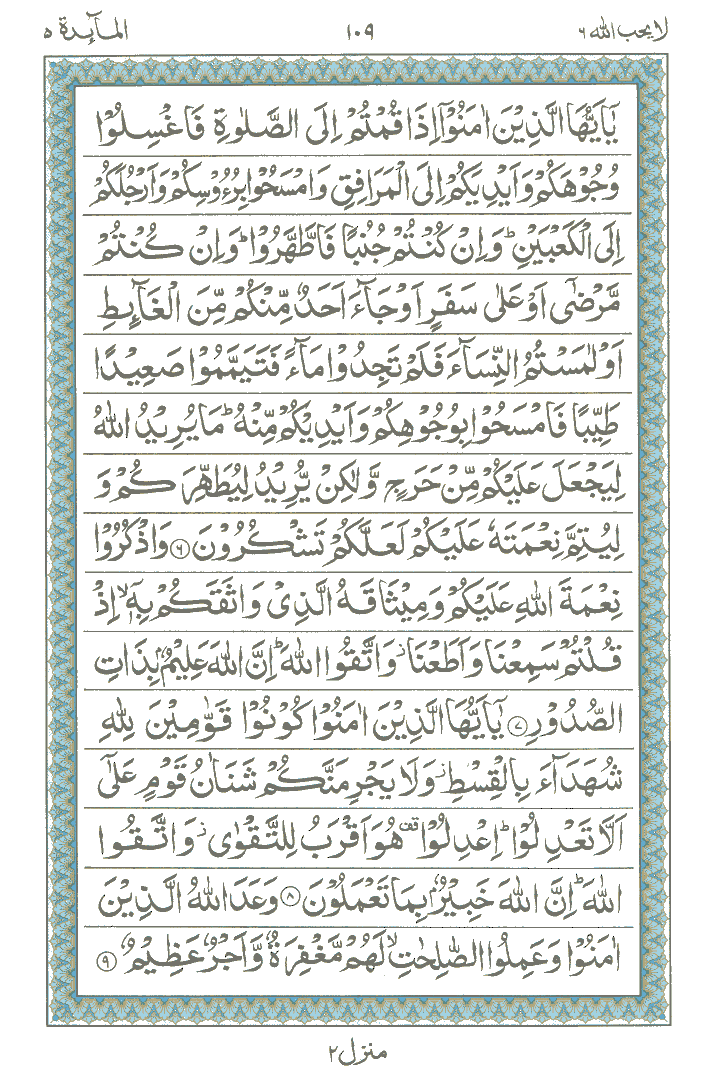 لا یحب الله ۶ ۱۰۹ المآئدة ۵
یٰۤاَیُّهَا الَّذِیْنَ اٰمَنُوْۤا اِذَا قُمْتُمْ اِلَی الصَّلٰوةِ فَاغْسِلُوْا
وُجُوْهَكُمْ وَاَیْدِیَكُمْ اِلَی الْمَرَافِقِ وَامْسَحُوْا بِرُءُوْسِكُمْ وَاَرْجُلَكُمْ
اِلَی الْكَعْبَیْنِ ؕ وَاِنْ كُنْتُمْ جُنُبًا فَاطَّهَّرُوْا ؕ وَاِنْ كُنْتُمْ
مَّرْضٰۤی اَوْ عَلٰی سَفَرٍ اَوْ جَآءَ اَحَدٌ مِّنْكُمْ مِّنَ الْغَآئِطِ
اَوْ لٰمَسْتُمُ النِّسَآءَ فَلَمْ تَجِدُوْا مَآءً فَتَیَمَّمُوْا صَعِیْدًا
طَیِّبًا فَامْسَحُوْا بِوُجُوْهِكُمْ وَاَیْدِیْكُمْ مِّنْهُ ؕ مَا یُرِیْدُ اللهُ
لِیَجْعَلَ عَلَیْكُمْ مِّنْ حَرَجٍ وَّلٰكِنْ یُّرِیْدُ لِیُطَهِّرَكُمْ وَ
لِیُتِمَّ نِعْمَتَهٗ عَلَیْكُمْ لَعَلَّكُمْ تَشْكُرُوْنَ ﴿۶﴾ وَاذْكُرُوْا
نِعْمَةَ اللهِ عَلَیْكُمْ وَمِیْثَاقَهُ الَّذِیْ وَاثَقَكُمْ بِهٖۤ ۙ اِذْ
قُلْتُمْ سَمِعْنَا وَاَطَعْنَا ؗ وَاتَّقُوا اللهَ ؕ اِنَّ اللهَ عَلِیْمٌۢ بِذَاتِ
الصُّدُوْرِ ﴿۷﴾ یٰۤاَیُّهَا الَّذِیْنَ اٰمَنُوْا كُوْنُوْا قَوّٰمِیْنَ لِلّٰهِ
شُهَدَآءَ بِالْقِسْطِ ؗ وَلَا یَجْرِمَنَّكُمْ شَنَاٰنُ قَوْمٍ عَلٰۤی
اَلَّا تَعْدِلُوْا ؕ اِعْدِلُوْا ۫ هُوَ اَقْرَبُ لِلتَّقْوٰی ؗ وَاتَّقُوا
اللهَ ؕ اِنَّ اللهَ خَبِیْرٌۢ بِمَا تَعْمَلُوْنَ ﴿۸﴾ وَعَدَ اللهُ الَّذِیْنَ
اٰمَنُوْا وَعَمِلُوا الصّٰلِحٰتِ ۙ لَهُمْ مَّغْفِرَةٌ وَّاَجْرٌ عَظِیْمٌ ﴿۹﴾
منزل ۲